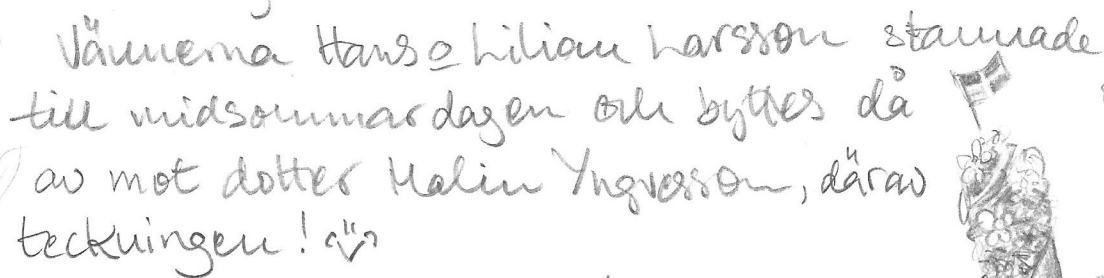 Vännerna Hans o Lilian Larsson stannade
till midsommardagen och byttes då
av mot dotter Malin Yngvesson, därav
teckningen!